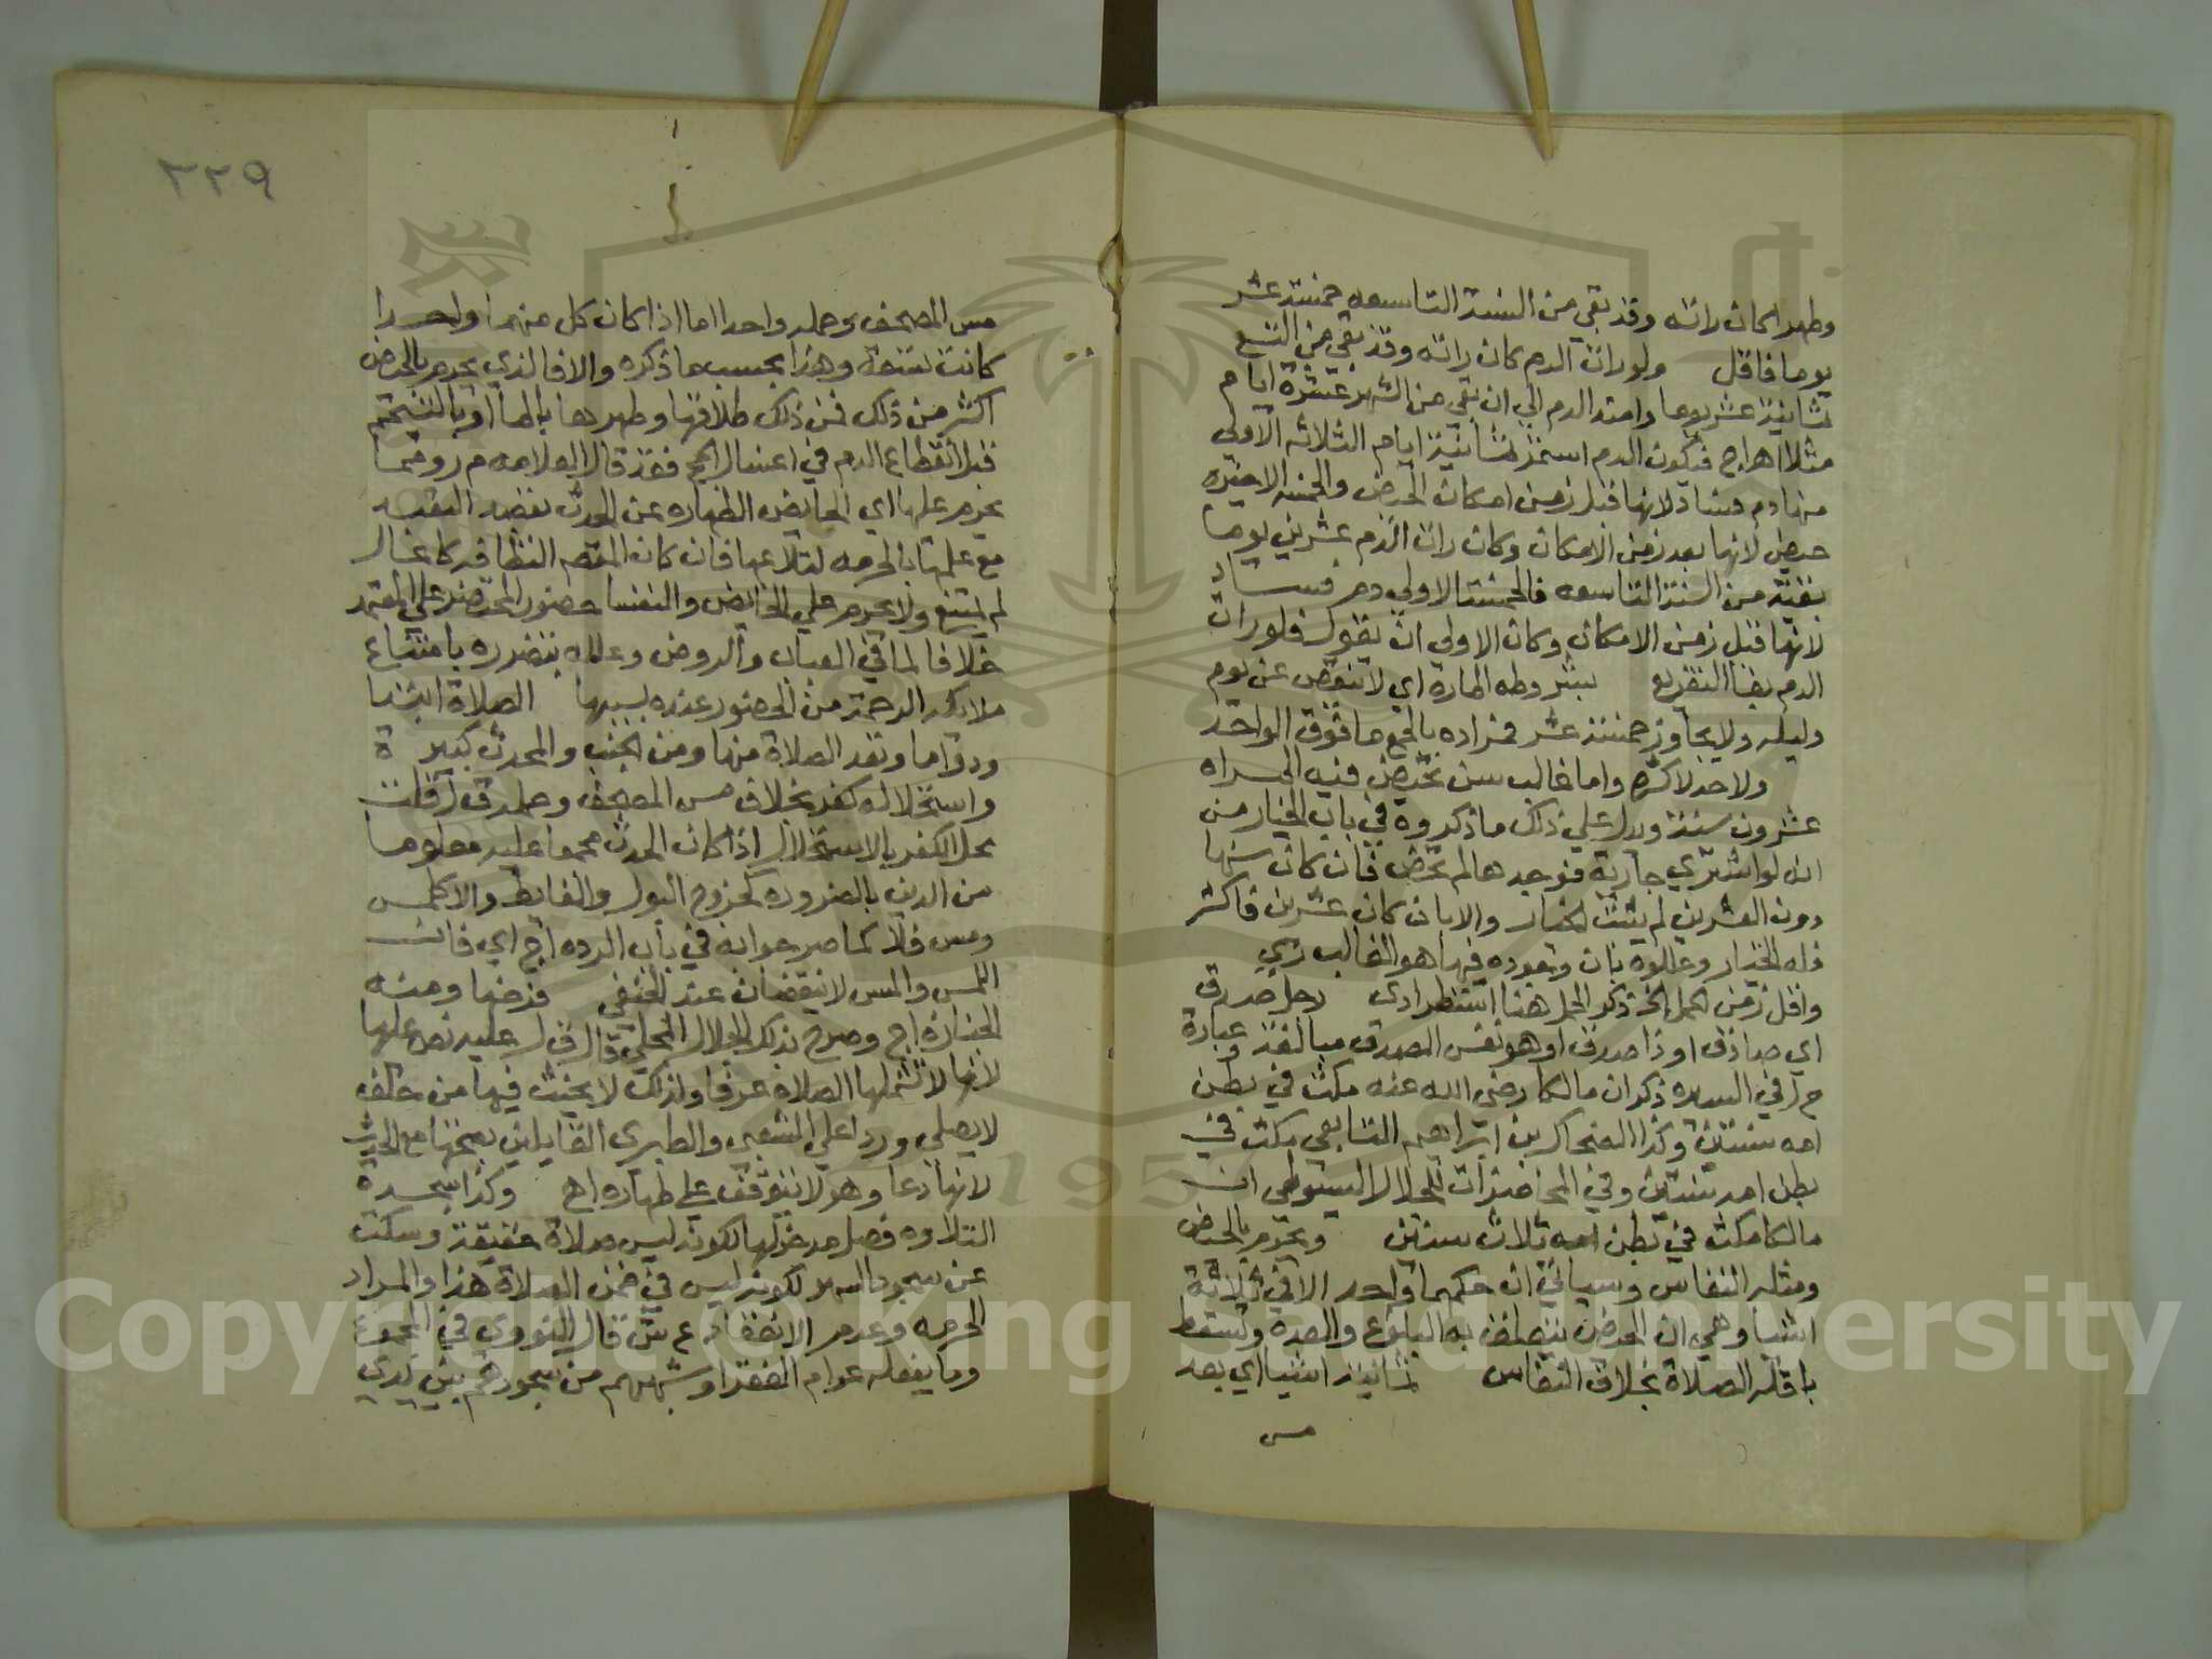 وطهر ا كان راته وقد بقي من السنة التاسعه خمسة عشر
يوما فاقل ولو رات الدم كان راته وقد بقي من التسع
ثمانية عشر يوما وامتد الدم الي ان بقي من الشهر عشرة ايام
مثلا اهـ اج فيكون الدم استمر ثمانية ايام الثلاثه الاولي
منها دم فساد لانها قبل زمن امكان الحيض والخمسه الاخيره
حيض لانها بعد زمن الامكان وكان رات الدم عشرين يوما
بقية من السنة التاسعه فالخمسة الاولي دم فساد
لانها قبل زمن الامكان وكان الاولي ان يقول فلو رات
الدم بفاا التفريع بشروطه الماره اي لا تنقص عن يوم
وليله ولا يجاوز خمسة عشر فمراده بالجمع ما فوق الواحد
ولا حد لاكثره واما غالب سن تحيض فيه المراه
عشرون سنة ويدل علي ذلك ما ذكروه في باب الخيار من
انه لو اشتري جارية فوجدها لم تحض فان كان سنها
دون العشرين لم يثبت الخيار والا بان كان عشرين فاكثر
فله الخيار وعللوه بان وجوده فيها هو الغالب زي
واقل زمن الحمل الخ ذكر الحمل هنا استطرادي رجل صدق
اي صادق او ذا صدق او هو نفس الصدق مبالغة عبارة
م ر في العدده ذكر ان مالكا رضي الله عنه مكث في بطن
امه سنتين وكذا الضحاك بن ابراهيم التابعي مكث في
بطن امه سنتين وفي المحاضرات للجلال السيوطي ان
مالكا مكث في بطن امه ثلاث سنين ويحرم بالحيض
ومثله النفاس وسياتي ان حكمهما واحد الا في ثلاثة
اشيا وهي ان الحيض يتعلق به البلوغ والعده وتسقط
باقله الصلاة بخلاف النفاس ثمانية اشيا اي بعد
مس
٣٣٩
مس المصحف وحمله واحدا اما اذا كان كل منهما واحدا
كانت تسعة وهذا بحسب ما ذكره والا فالذي يحرم بالحيض
اكثر من ذلك فمن ذلك طلاقها وطهرها بالما او بالتيمم
قبل انقطاع الدم في اغسال الحج فقد قال العلامه م ر ومما
يحرم عليها اي الحايض الطهاره عن الحدث بقصد التعبد
مع علمها بالحرمه لتلاعبها فان كان القصد النظافه كاغسال
لم يمتنع ولا يحرم علي الحايض والنفسا حضور المحتضر علي المعتمد
خلافا لما في العباب والروض وعلله بتضرره بامتناع
ملايكه الرحمة من الحضور عنده بسببها الصلاة ابتدا
ودواما وتعد الصلاة منها ومن الجنب والمحدث كبيرة
واستحلاله كفر بخلاف مس المصحف وحمله ق ل قلت
محل الكفر بالاستحلال اذا كان الحدث مجمعا عليه معلوما
من الدين بالضروره كخروج البول والغايط والا كلمس
ومس فلا كما صرحوا به في باب الرده اج اي فان
اللمس والمس لا ينقضان عند الحنفي فرضها ومنه
الجنازه اج وصرح بذلك الجلال المحلي قال ق ل عليه نص عليها
لانها لا تشملها الصلاة عرفا ولذلك لا يحنث فيها من حلف
لا يصلي وردا علي الشعبي والطبري القايلين بصحتها مع الحدث
لانها دعا وهو لا يتوقف علي طهاره اهـ وكذا سجدة
التلاوه فصل مدخولها لكونه ليس صلاة حقيقة وسكت
عن سجود السهو لكونه ليس في ضمن الصلاة هذا والمراد
الحرمه وعدم الانعقاد ع ش قال النووي في المجموع
وما يفعله عوام الفقرا وشبههم من سجودهم بين يدي
Copyright © King Saud University
1957